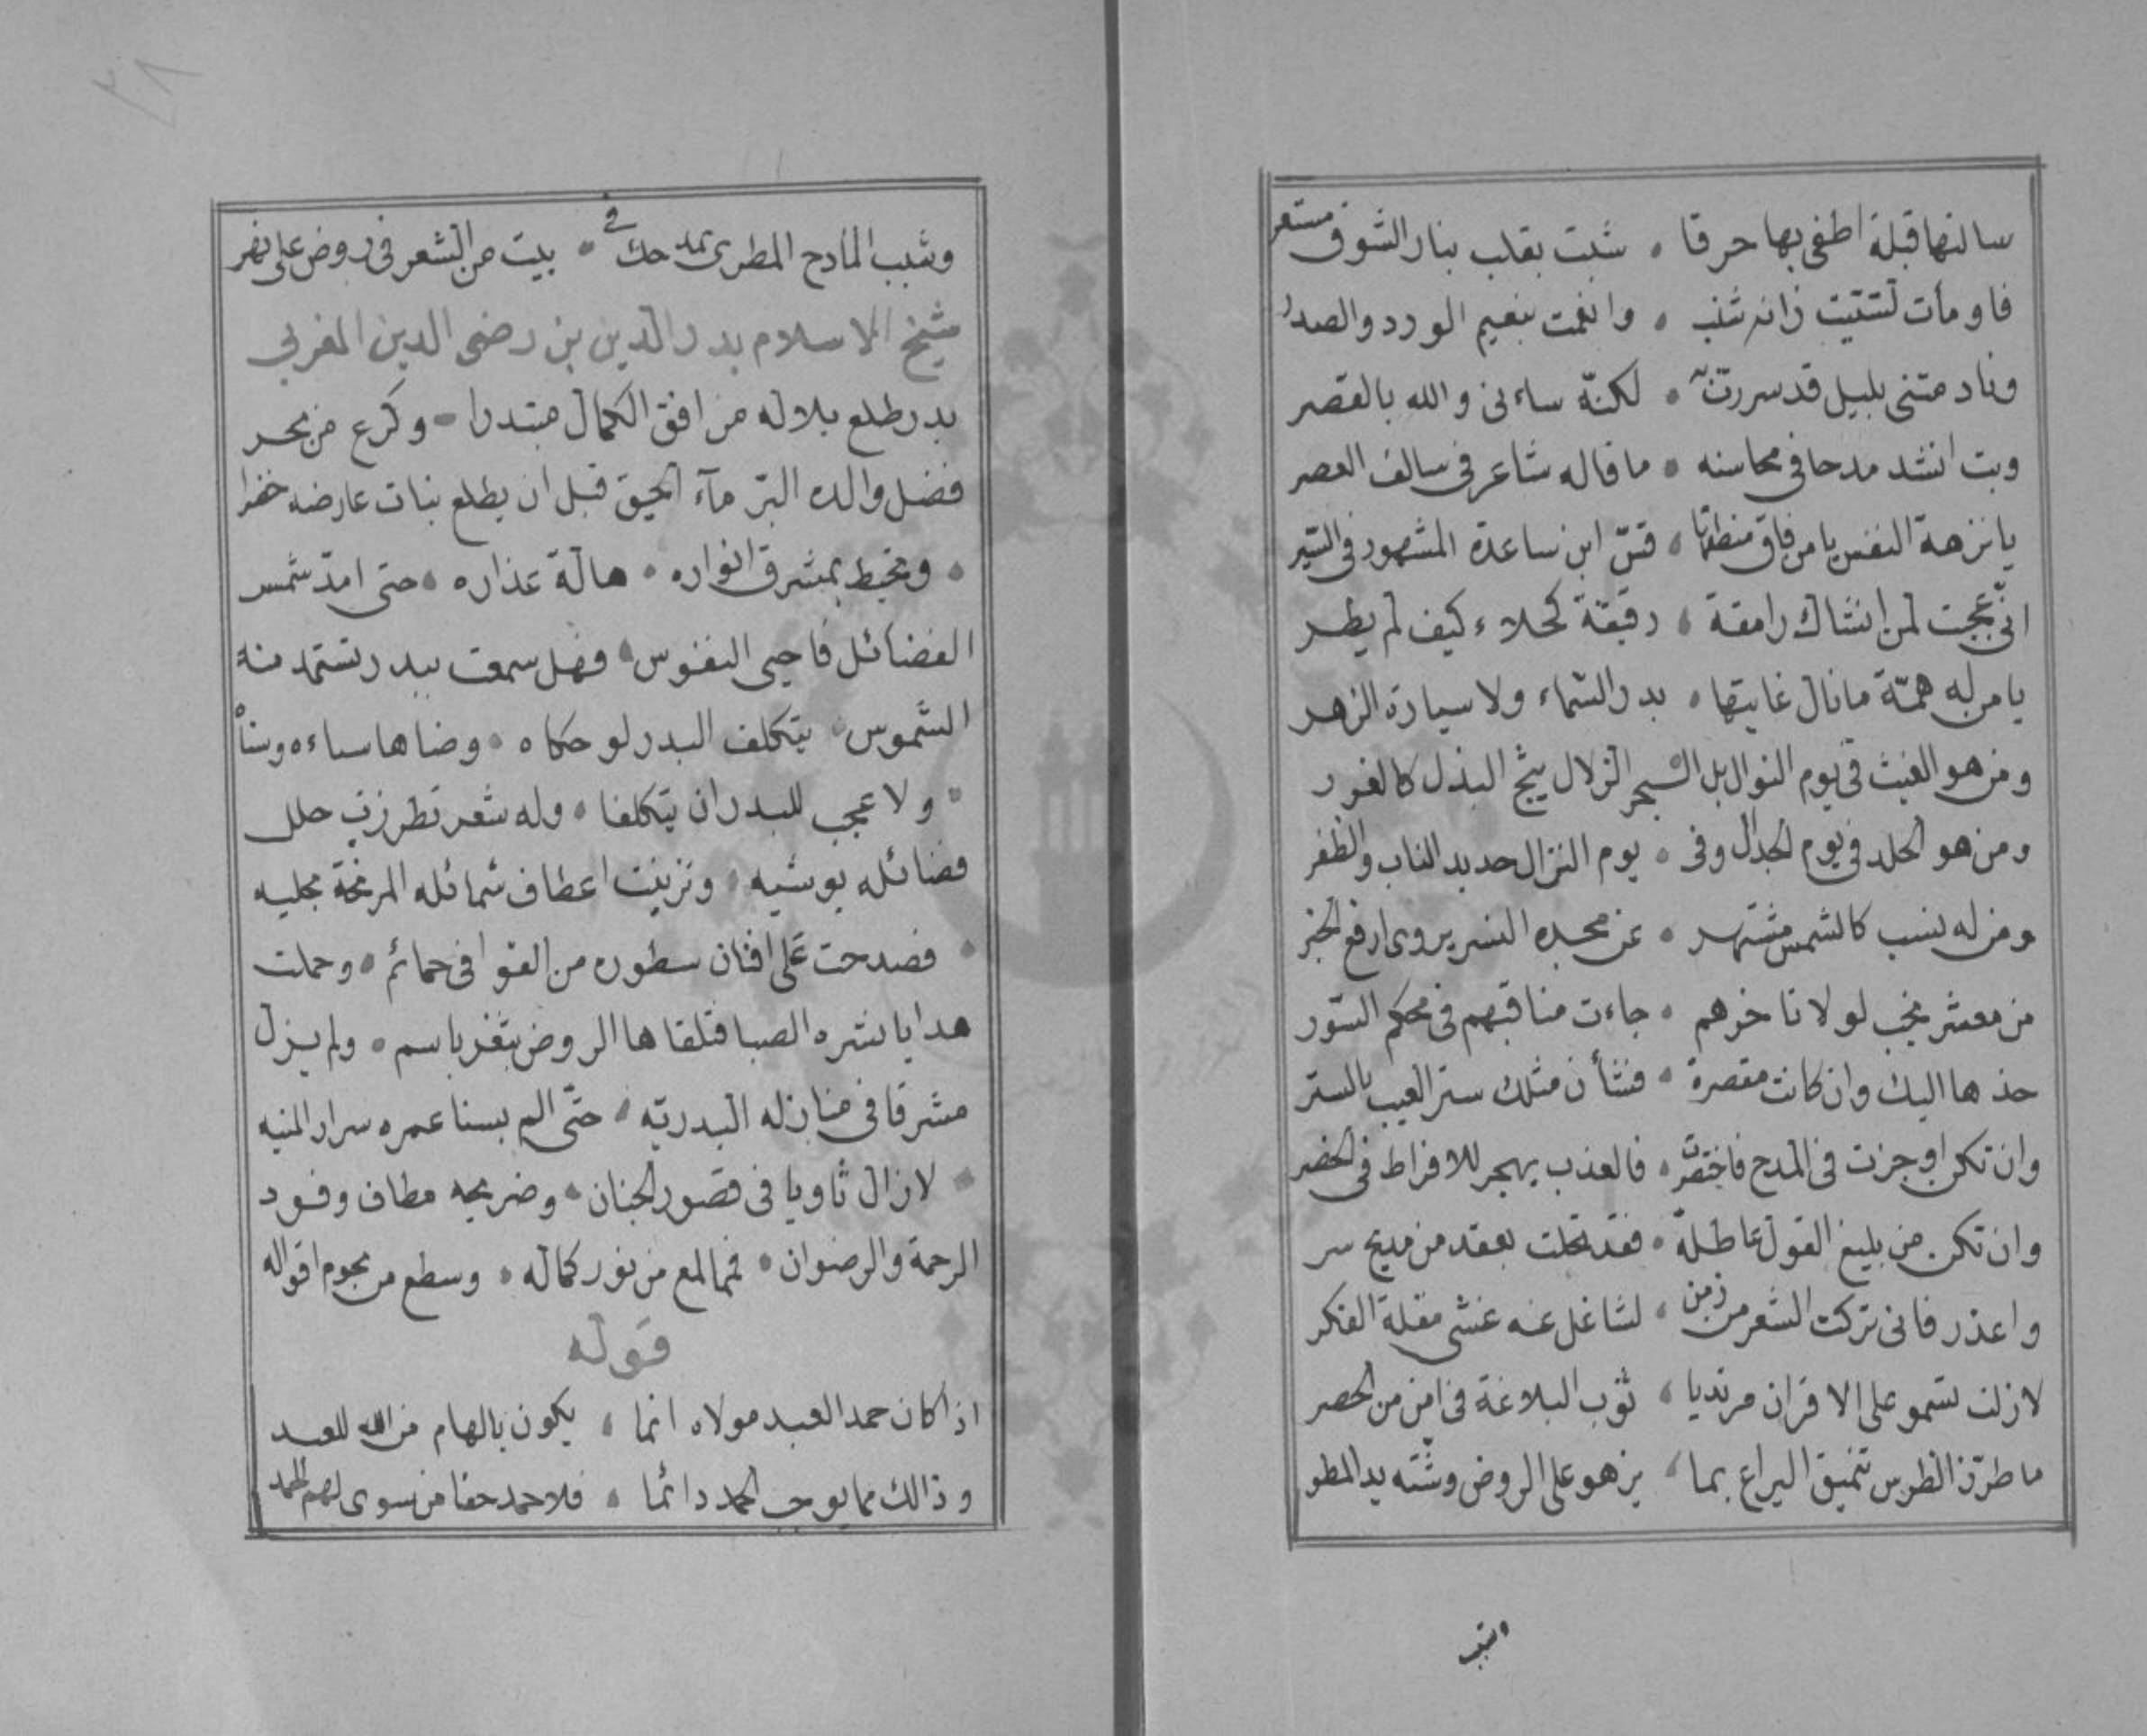 سالتها قبلة اطفى بها حرقا • شبت بقلب بنار الشوق مستعر
فاومأت لشتيت زانه شنب • وانغمت بنعيم الورد والصدر
ونادمتنى بليل قد سررت به • لكنّه ساءنى والله بالقصر
وبت انشد مدحا فى محاسنه • ما قاله شاعر فى سالف العصر
يا نزهة النفس يا من فاق منطقها • قسّ ابن ساعدة المشهور فى السّير
انّى عجبت لمن انشاك رامقة • كحلاء كيف لم يطر
يا من له همّة ما نال غايتها • بدر السّماء ولا سيارة الزهر
ومن هو الغيث فى يوم النوال بل الزلال البذل كالغور
ومن هو الجلد فى يوم الجدال وفى • يوم النزال حديد الناب والظفر
ومن له نسب كالشمس مشتهر • عن مجده النسر يروى ارفع الخبر
من معشر نجب لولا تاخرهم • جاءت مناقبهم فى محكم السّور
خذها اليك وان كانت مقصرة • فشأن مثلك ستر العيب بالستر
وان تكن اوجزت فى المدح فاختصرت • فالعذب يهجر للافراط فى الخصر
وان تكن من بليغ القول عاطلة • فقد تحلت بعقد من مديح سر
واعذر فانى تركت الشعر من زمن • لشاغل عنه غشى مقلة الفكر
لا زلت تسمو على الاقران مرتديا • ثوب البلاغة فى امن من الحصر
ما طرّز الطرس تنميق اليراع بما • يزهو على الروض وشّته يد المطر
وشبب
وشبب المادح المطرى بمدحك فى • بيت من الشعر فى روض على نهر
شيخ الاسلام بدر الدين بن رضى الدين الغزى
بدر طلع بلاله من افق الكمال مبتدرا • وكرع من بحر
فضل والده البرّ قبل ان يطلع نبات عارضه خضرا
• ويحيط بمشرق انواره • هالة عذاره • حتى امدّ شمس
الفضائل فاحيى النفوس • فهل سمعت ببدر تستمد منه
الشموس • يتكلف البدر لو حكاه • وضاها سناءه وسنا
• ولا عجب للبدر ان يتكلفا • وله شعر تطرزت حلل
فضائله بوشيه • وتزينت اعطاف شمائله المرنحة بحليه
• فصدحت على افنان سطوره من القوافى حمائم • وحملت
هدايا نشره الصبا فتلقاها الروض بثغر باسم • ولم يزل
مشرقا فى منازله البدريّه • حتّى الم بسنا عمره سرار المنيه
• لازال ثاويا فى قصور الجنان • وضريحه مطاف وفود
الرحمة والرضوان • فمما لمع من نور كماله • وسطع من نجوم اقواله
قوله
اذا كان حمد العبد مولاه انما • يكون بالهام من الله للعبد
وذالك مما يوجب الحمد دائما • فلا حمد حقا من سوى لهم الحمد